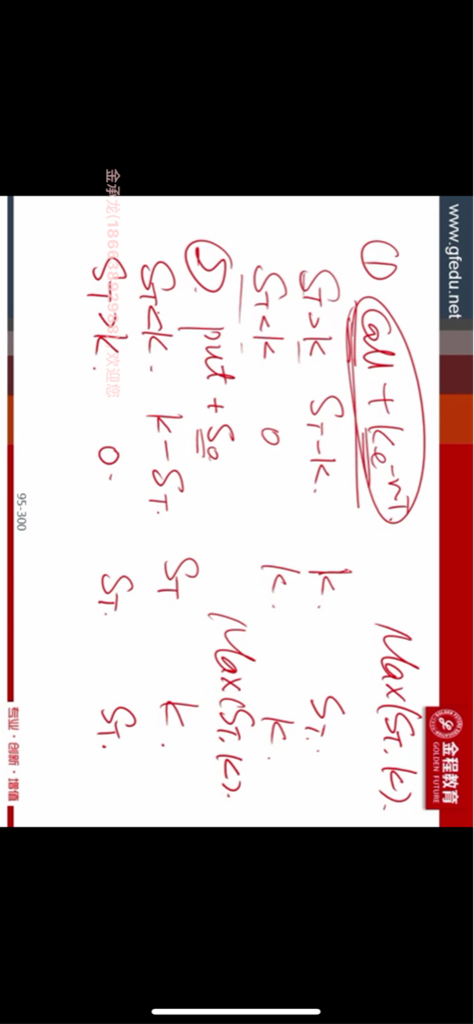 www.gfedu.net
金程教育
GOLDEN FUTURE
① Call + Ke^-rT. Max(ST, K).
ST>K ST-K. K. ST.
ST<K 0 K. K.
⑤. put + S0 Max(ST, K).
ST<K. K-ST. ST K.
ST>K. 0. ST. ST.
95-300
专业·创新·增值